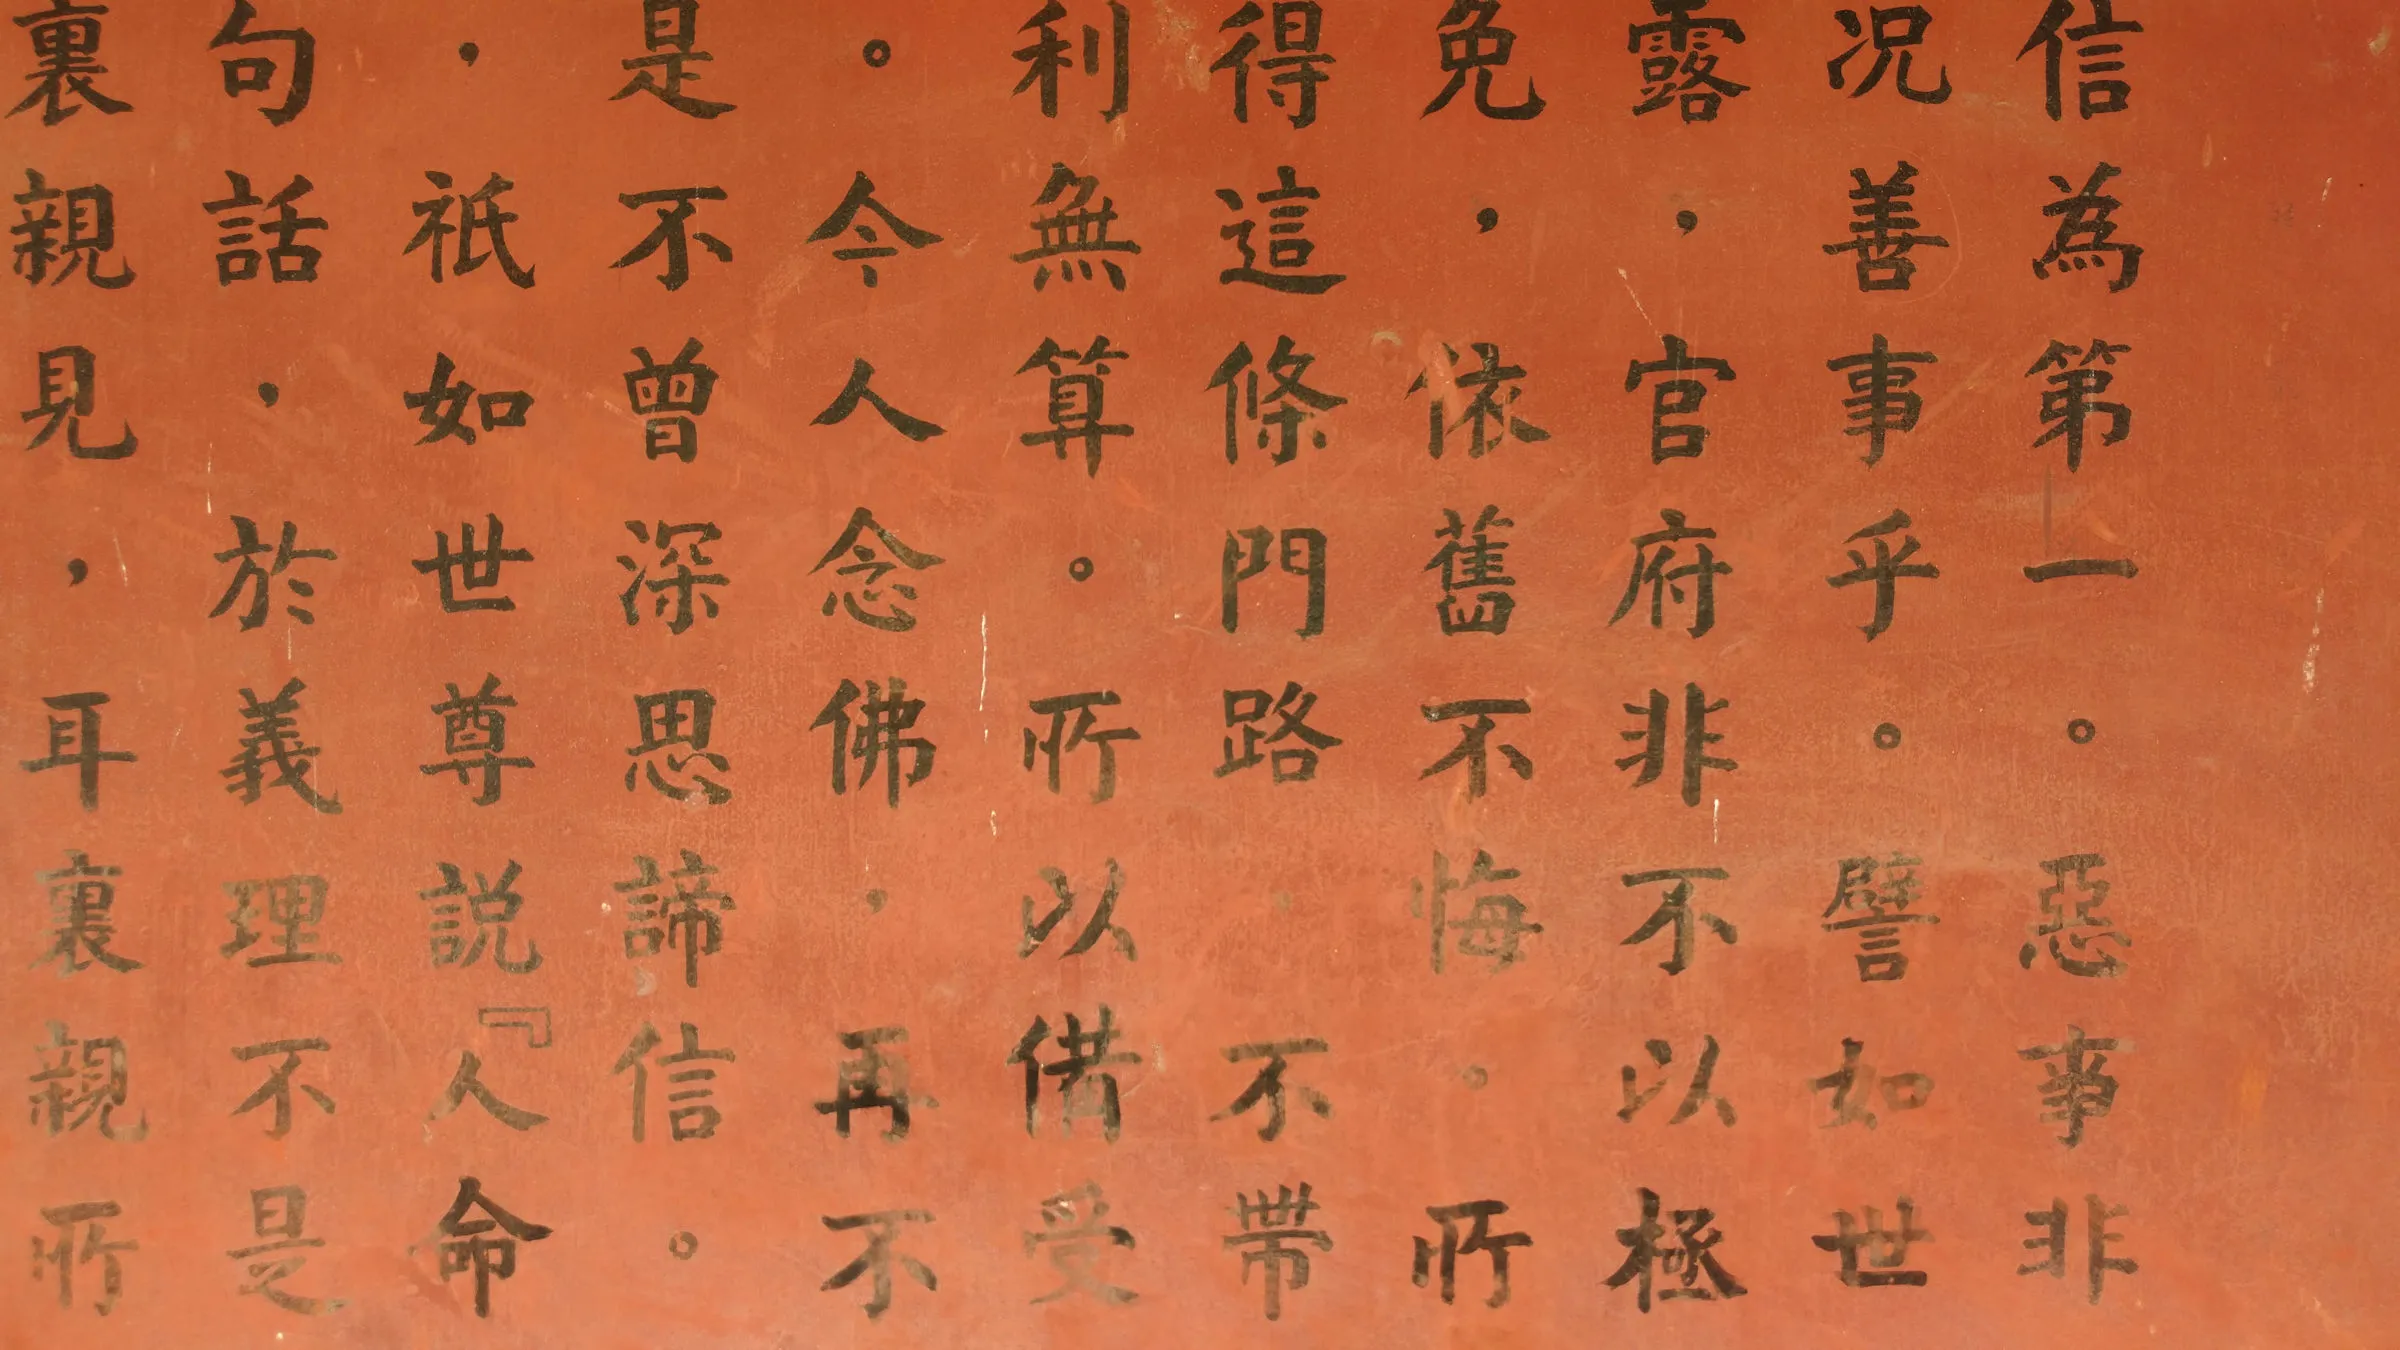 信為第一。惡事非
况善事乎。譬如世
露，官府非不以極
免，依舊不悔。所
得這條門路，不帶
利無算。所以備受
。今人念佛，再不
是不曾深思諦信。
，祇如世尊說『人命
句話，於義理不是
裏親見，耳裏親所